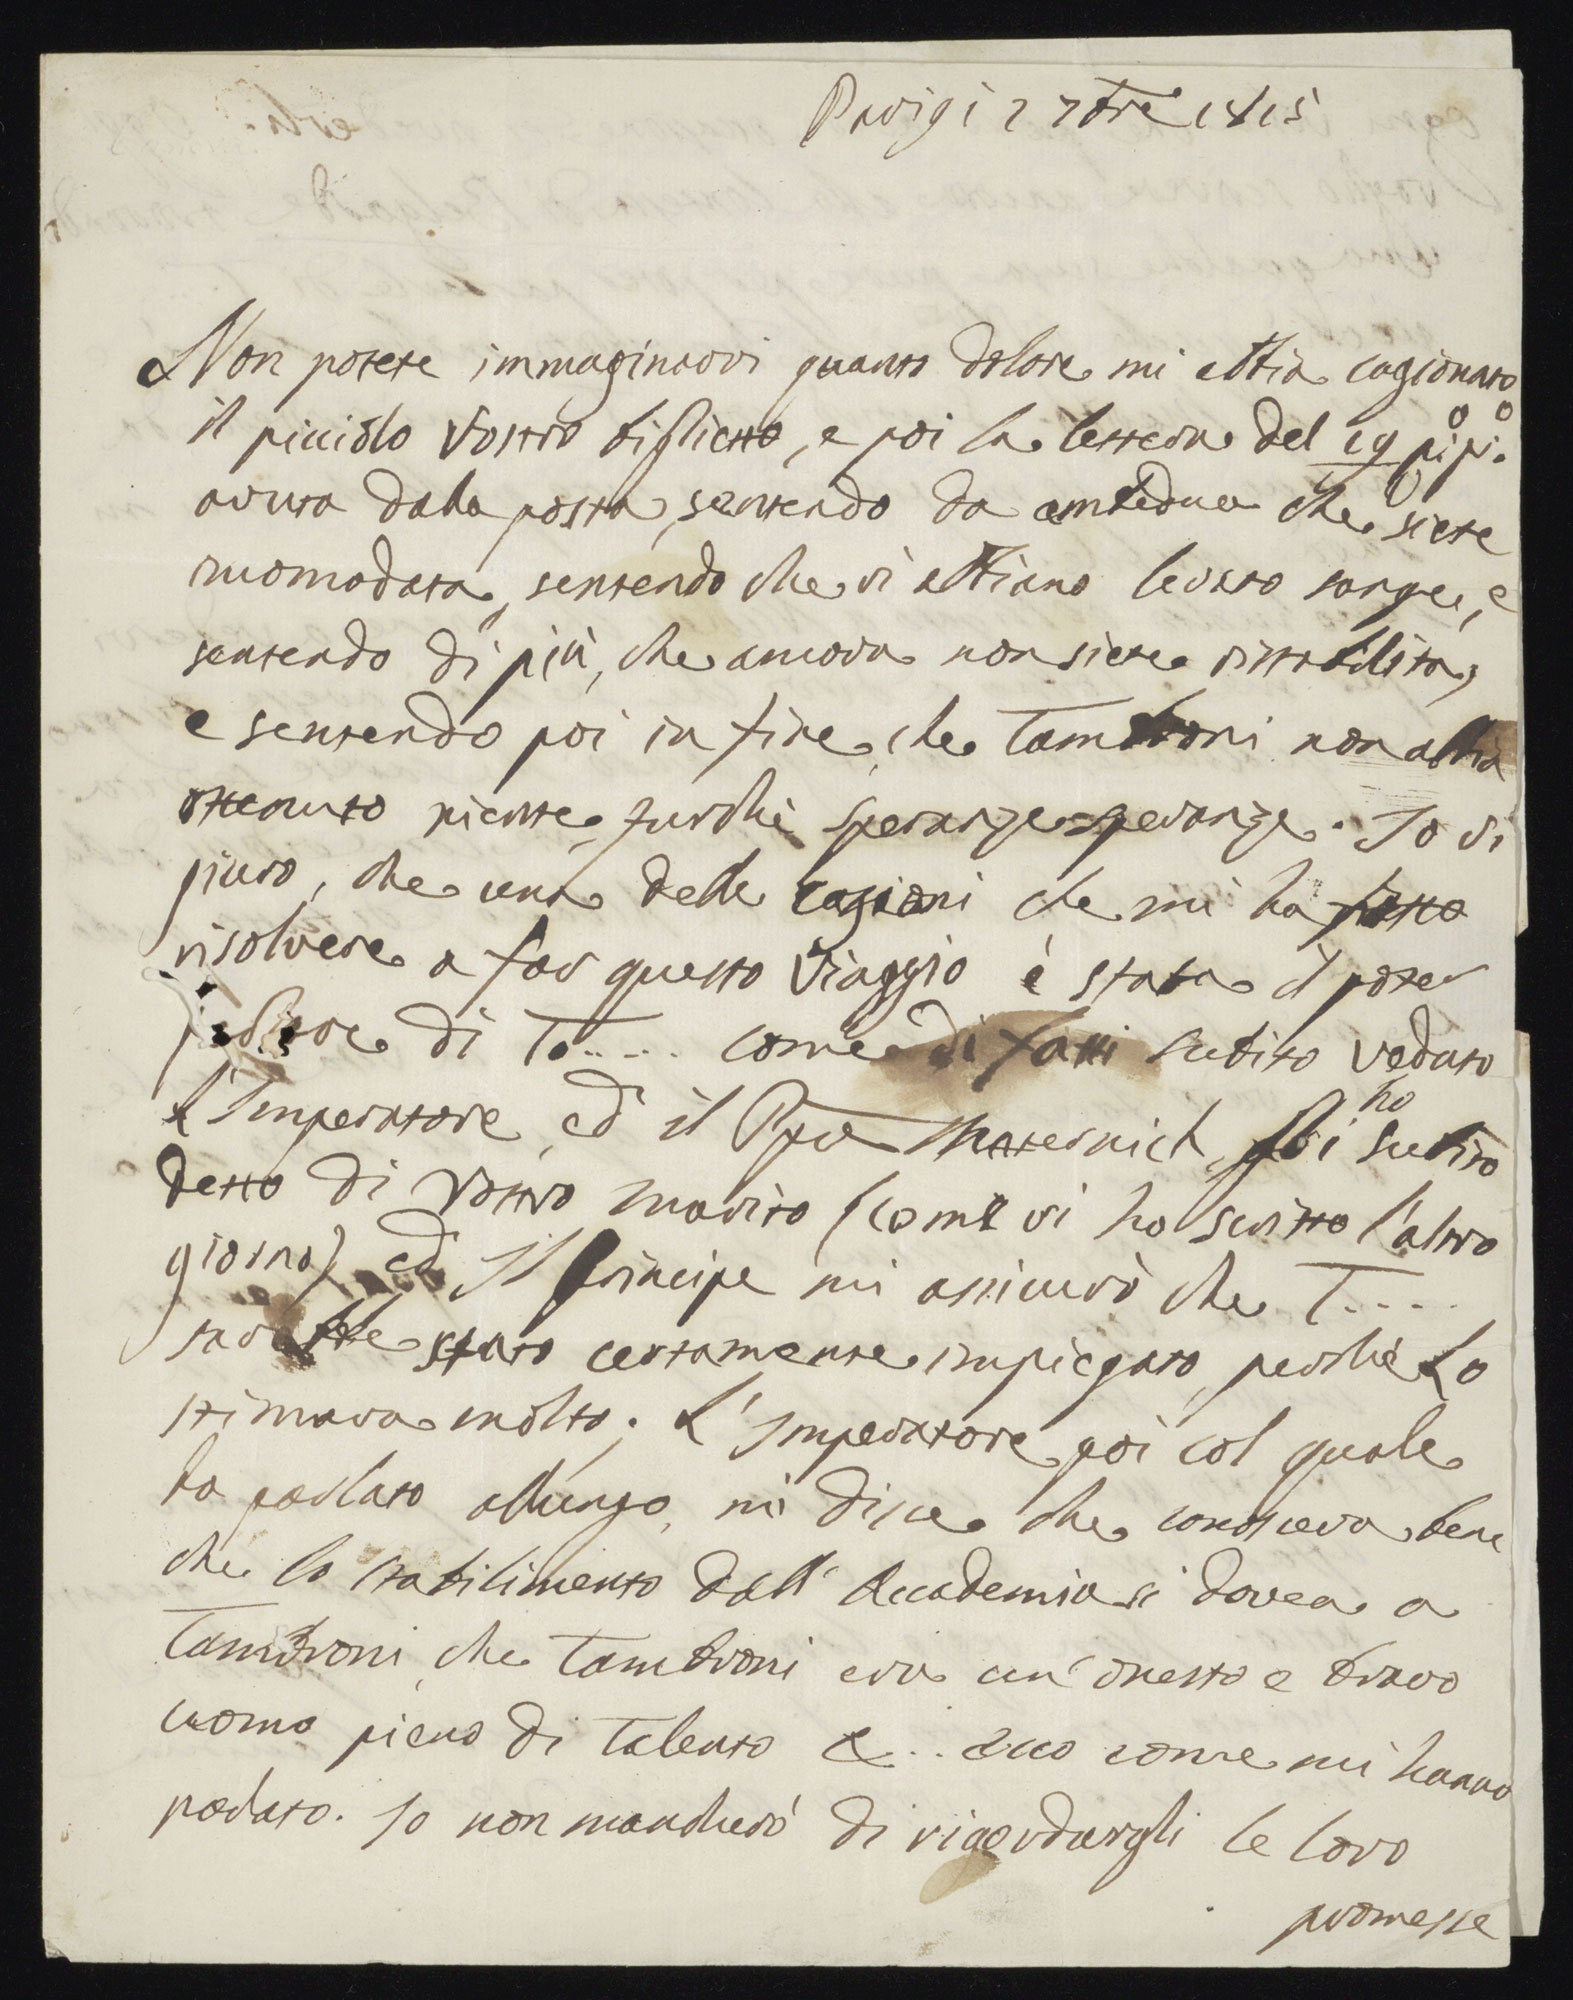 Parigi 2 7bre 1815
Non potete immaginarvi quanto dolore mi abbia cagionato
il picciolo vostro biglietto, e poi la lettera del 19 p.o p.o
avuta dalla posta, sentendo da ambedue che siete
incomodata, sentendo che vi abbiano levato sangue, e
sentendo di più, che ancora non siete ristabilita,
e sentendo poi in fine, che Tambroni non abbia
ottenuto niente, furchè speranze speranze. Io vi
giuro, che una delle cagioni che mi ha fatto
risolvere a far questo viaggio è stata il poter
parlare di Ta..... come di fatti subito veduto
L'Imperatore, ed il Ppe Metternich, gli ho subito
detto di vostro marito (come vi ho scritto l'altro
giorno) ed Il Principe mi assicurò che T.....
sarebbe stato certamente impiegato, perchè Lo
stimava molto. L'Imperatore poi col quale
ho parlato allungo, mi disse che conosceva bene
che lo stabilimento dell' Accademia si dovea a
Tambroni, che Tambroni era un' onesto e bravo
uomo pieno di talento e.. ecco come mi hanno
parlato. Io non mancherò di ricordargli le loro
promesse